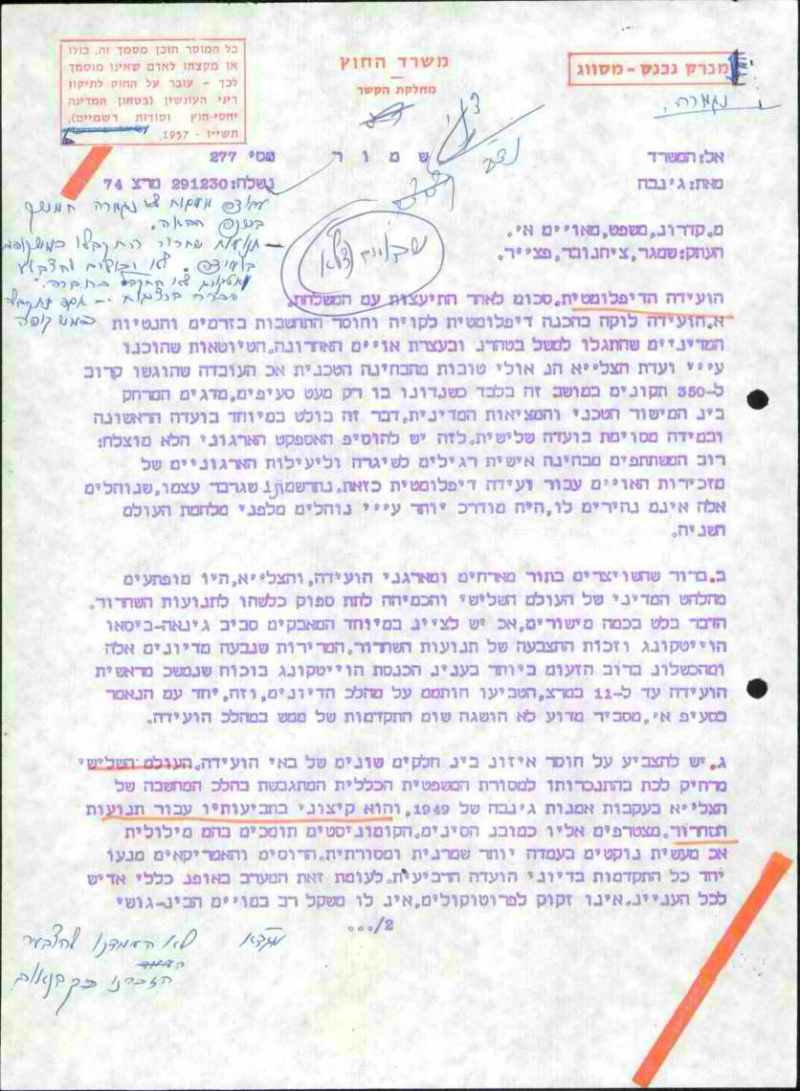 כל המוסר תוכן מסמך זה, כולו
או מקצתו לאדם שאינו מוסמך
לכך - עובר על החוק לתיקון
דיני העונשין (בטחון המדינה
יחסי-חוץ וסודות רשמיים),
תשי״ז - 1957.
משרד החוץ
מחלקת הקשר
מברק נכנס - מסווג
שמור
מס׳ 277
אל:המשרד
נשלח:291230 מרצ 74
מאת:ג׳נבה
מ.קדרונ,משפט,מאויים א׳.
העתק:שמגר,ציחנובר,פצייר.
הועידה הדיפלומטית.סכום לאחר התיעצות עם המשלחת.
א.הועידה לוקה בהכנה דיפלומטית לקויה וחוסר התחשבות בזרמים והנטיות
המדיניים שהתגלו למשל בטהרנ ובעצרת אויים האחרונה.הטיוטאות שהוכנו
ע׳׳י ועדת הצל׳׳א הנ אולי טובות מהבחינה הטכנית אכ העובדה שהוגשו קרוב
ל-350 תקונים במושב זה בלבד כשנדונו בו רק מעט סעיפים,מדגים המרחק
בינ המישור הטכני והמציאות המדינית.דבר זה בולט במיוחד בועדה הראשונה
ובמידה מסוימת בועדה שלישית.לזה יש להוסיפ האספקט הארגוני הלא מוצלח:
רוב המשתתפים מבחינה אישית רגילים לשיגרה וליעילות הארגוניים של
מזכירות האויים עבור ועידה דיפלומטית כזאת.נתרשמתי שגרבר עצמו,שנוהלים
אלה אינם נהירים לו,היה מודרכ יותר ע׳׳י נוהלים מלפני מלחמת העולם
השניה.
ב.ברור שהשויצרים בתור מארחים ומארגני הועידה,והצל׳׳א,היו מופתעים
מהלהט המדיני של העולם השלישי והכמיהה לתת ספוק כלשהו לתנועות השחרור.
הדבר בלט בכמה מישורים,אכ יש לציינ במיוחד המאבקים סביב גינאה-ביסאו
הוייטקונג וזכות ההצבעה של תנועות השחרור.המרירות שנבעה מדיונים אלה
ומהכשלונ ברוב הזעום ביותר בענינ הכנסת הוייטקונג בוכוח שנמשכ מראשית
הועידה עד ל-11 במרצ,הטביעו חותמם על מהלכ הדיונים,וזה,יחד עם הנאמר
בסעיפ א׳,מסביר מדוע לא הושגה שום התקדמות של ממש במהלכ הועידה.
ג.יש להצביע על חוסר איזונ בינ חלקים שונים של באי הועידה.העולם השלישי
מרחיק לכת בהתנכרותו למסורת המשפטית הכללית המתגבשת בהלכ המחשבה של
הצל׳׳א בעקבות אמנות ג׳נבה של 1949,והוא קיצוני בתביעותיו עבור תנועות
השחרור.מצטרפים אליו כמובנ הסינים.הקומוניסטים תומכים בהם מילולית
אכ מעשית נוקטים בעמדה יותר שמרנית ומסורתית.הרוסים והאמריקאים מנעו
יחד כל התקדמות בדיוני הועדה הרביעית.לעומת זאת המערב באופנ כללי אדיש
לכל העניינ.אינו זקוק לפרוטוקולים,אינ לו משקל רב במויים הבינ-גושי
2/...